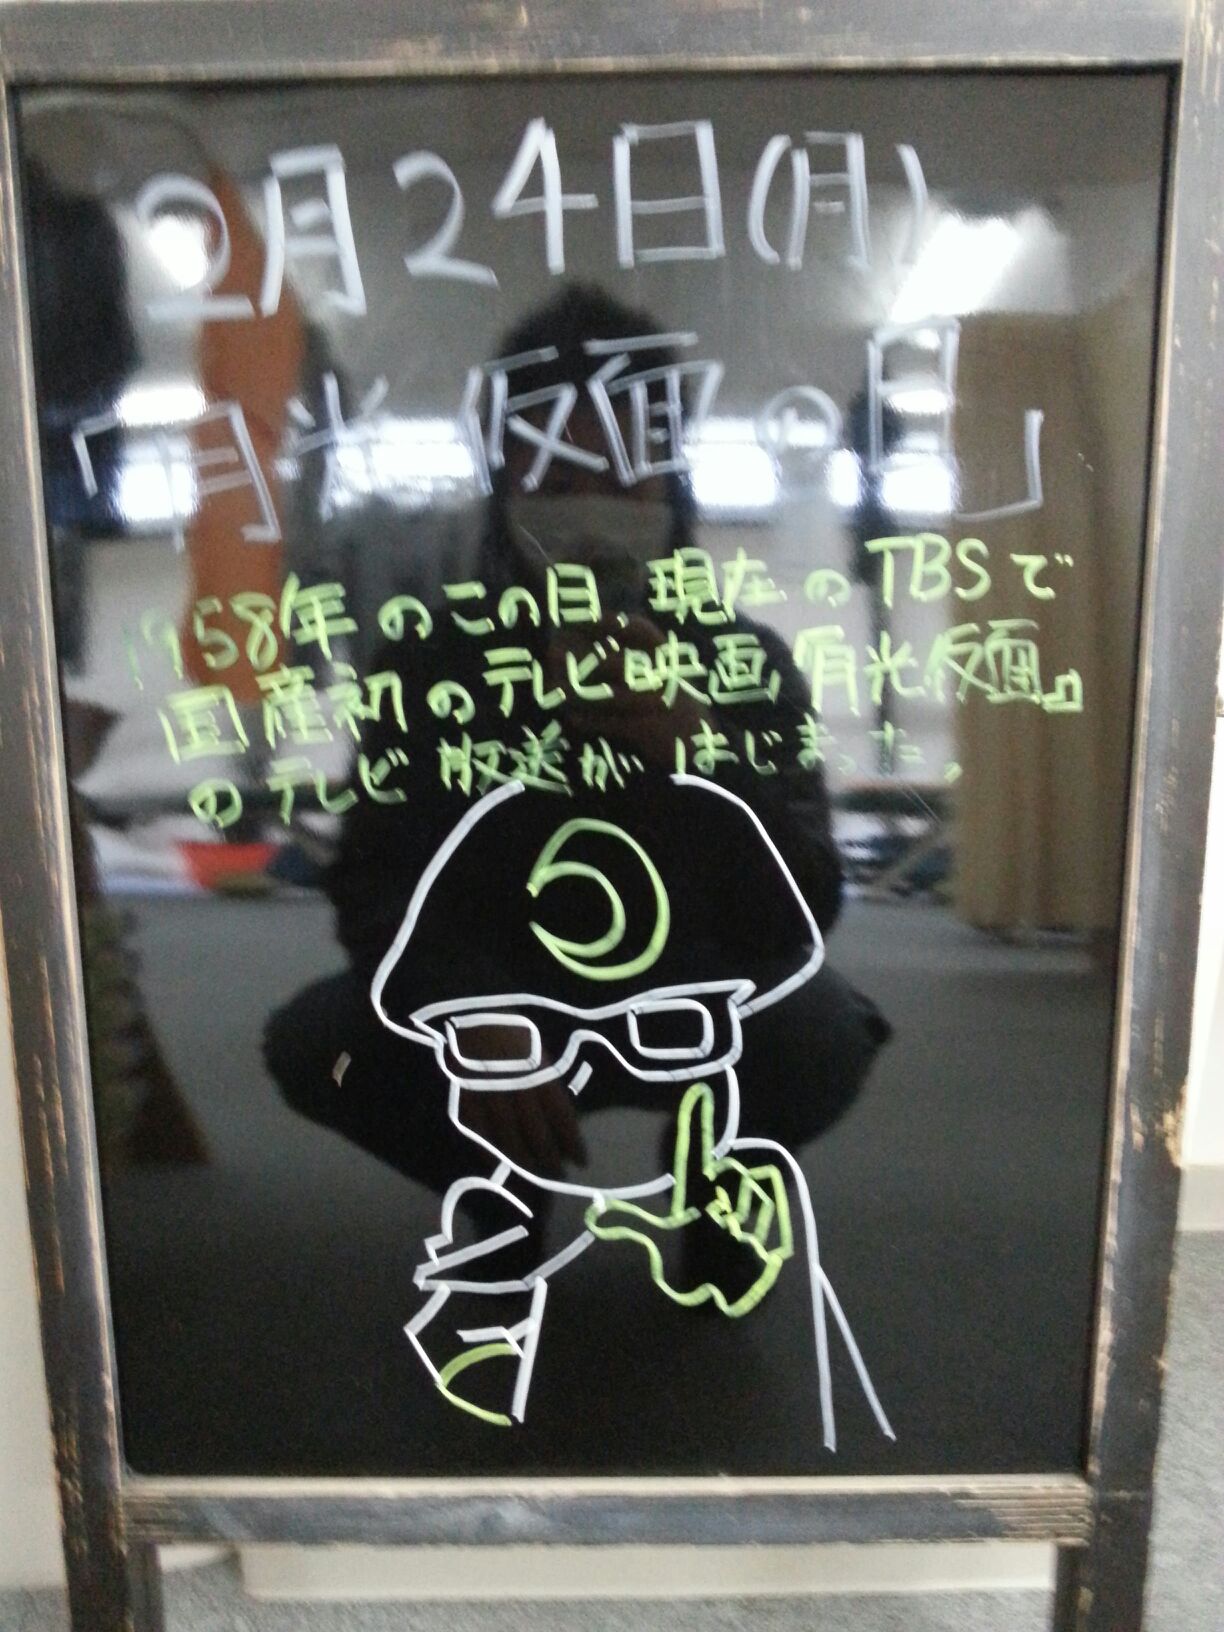 2月24日(月)
「月光仮面の日」
1958年のこの日、現在のTBSで
国産初のテレビ映画『月光仮面』
のテレビ放送がはじまった。